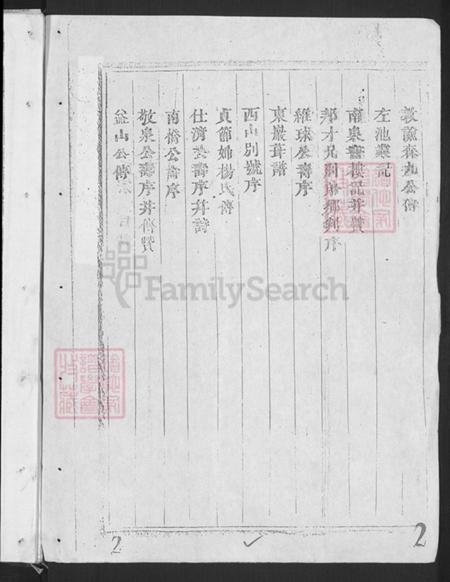 敦誼森九公傳
左池叢記
南泉書樓記并贊
邦才兄別麻鄉創序
維珠公壽序
東巖葺譜
西山別號序
貞節姊楊氏傳
仕濟公壽序并詩
南橋公壽序
敬泉公壽序并傳贊
益山公傳
FamilySearch
2
2